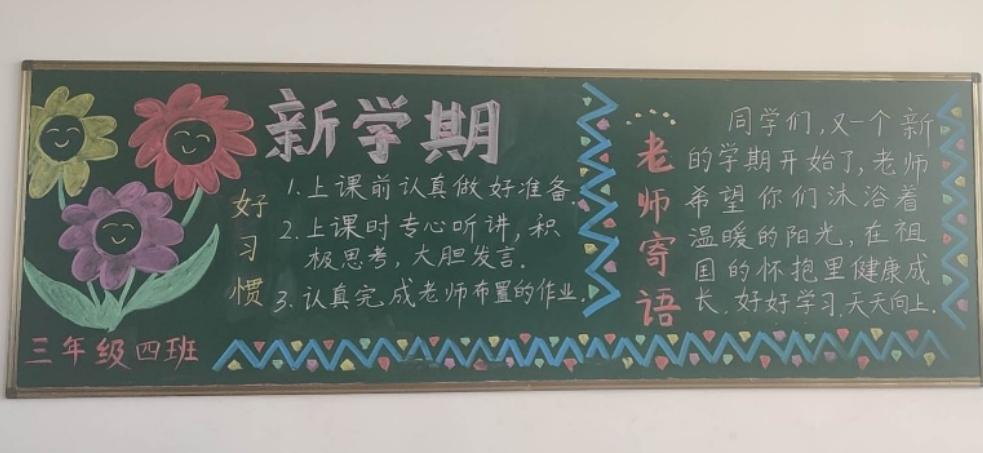 新学期
好习惯
1. 上课前认真做好准备.
2. 上课时专心听讲, 积
极思考, 大胆发言.
3. 认真完成老师布置的作业.
三年级四班
老师寄语
同学们, 又一个新
的学期开始了, 老师
希望你们沐浴着
温暖的阳光, 在祖
国的怀抱里健康成
长. 好好学习, 天天向上.